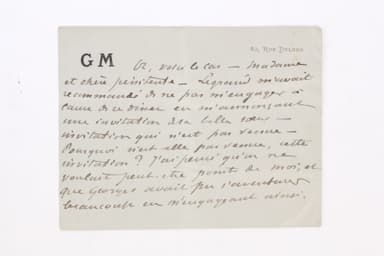 83, Rue Dulong
G M
Or, voici le cas – Madame
et chère pénitente – Legrand m'avait
recommandé de ne pas m'engager à
cause de ce dîner en m'annonçant
une invitation de sa belle sœur –
invitation qui n'est pas venue –
Pourquoi n'est elle pas venue, cette
invitation ? J'ai pensé qu'on ne
voulait peut-être point de moi, et
que Georges avait pu s'aventurer
beaucoup en m'engageant ainsi.